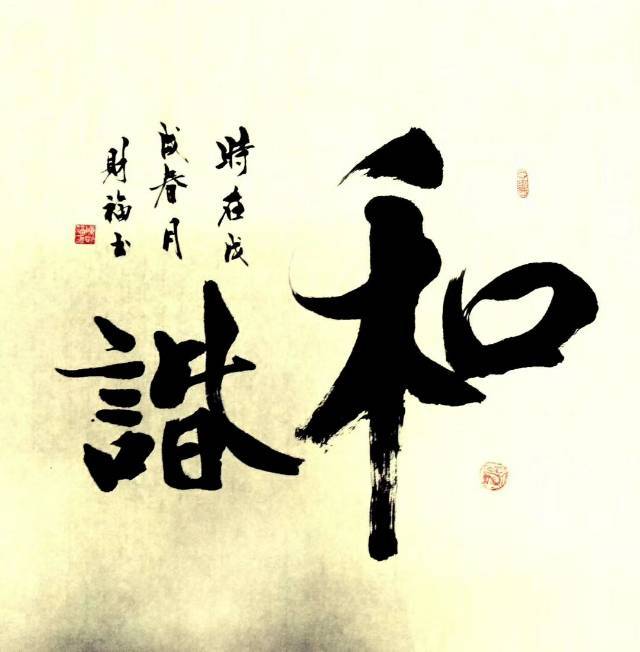 和諧
時在戊
戌春月
財福书